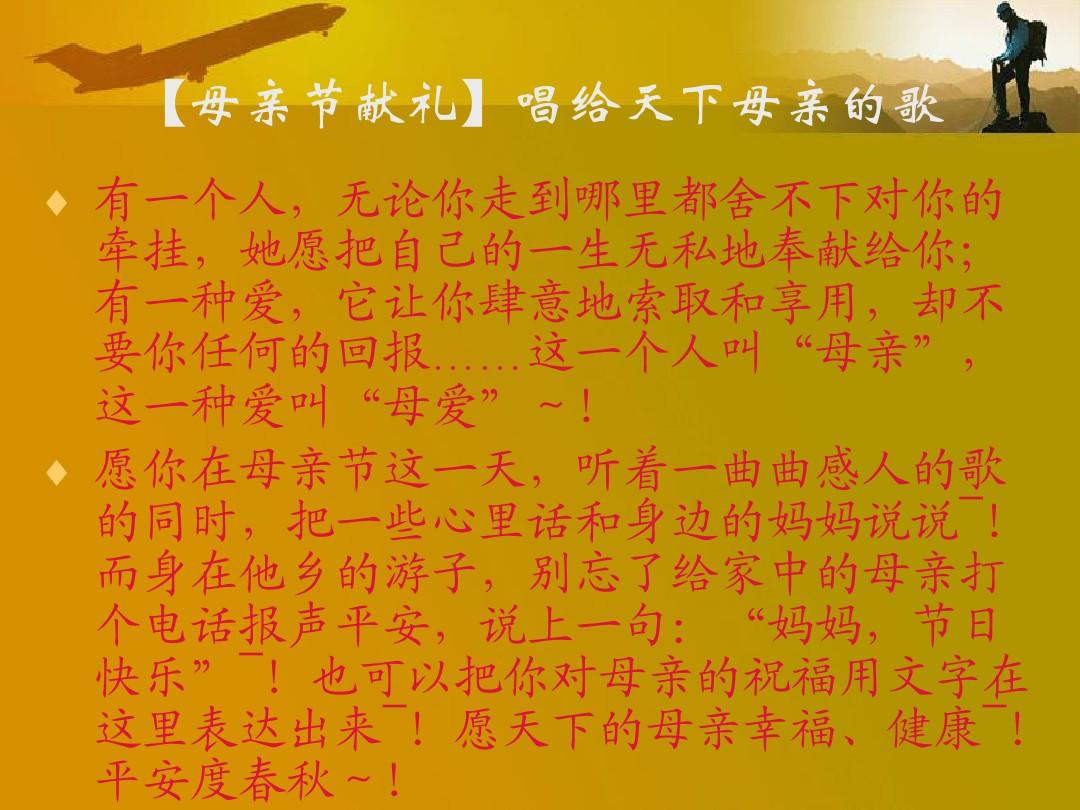 【母亲节献礼】唱给天下母亲的歌
有一个人，无论你走到哪里都舍不下对你的
牵挂，她愿把自己的一生无私地奉献给你；
有一种爱，它让你肆意地索取和享用，却不
要你任何的回报……这一个人叫“母亲”，
这一种爱叫“母爱”～！
愿你在母亲节这一天，听着一曲曲感人的歌
的同时，把一些心里话和身边的妈妈说说¯！
而身在他乡的游子，别忘了给家中的母亲打
个电话报声平安，说上一句：“妈妈，节日
快乐”¯！也可以把你对母亲的祝福用文字在
这里表达出来¯！愿天下的母亲幸福、健康¯！
平安度春秋～！